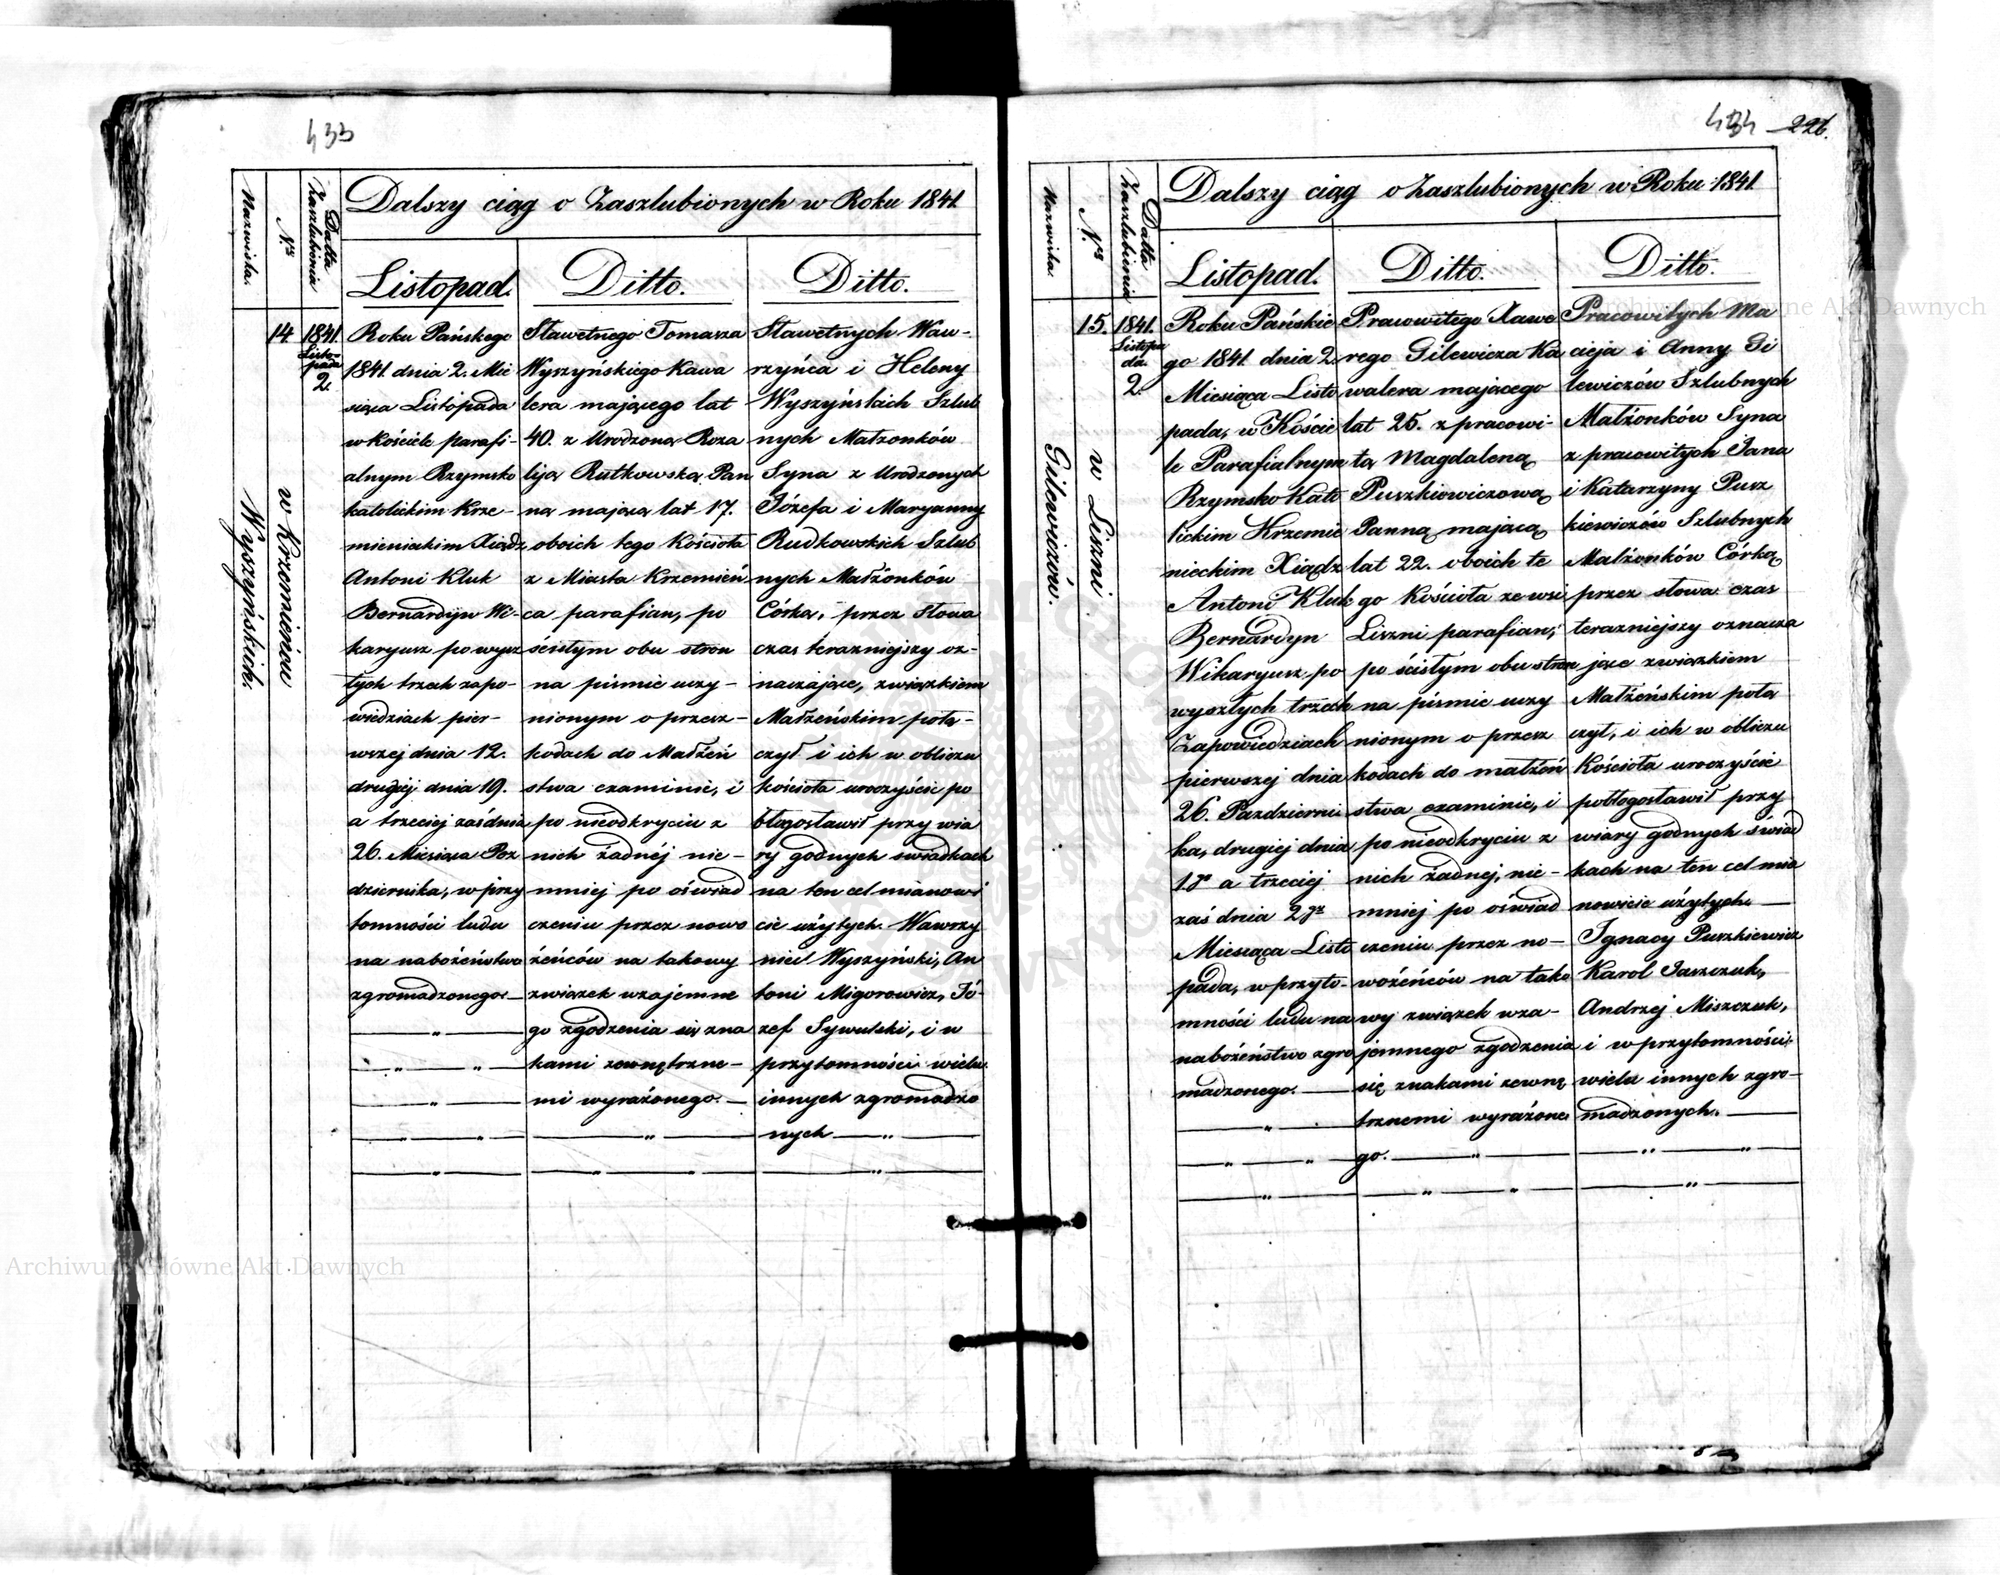 433
Dalszy ciąg o Zaszlubionych w Roku 1841.
Nazwiska.
N.
Datta Zaszlubienia
Listopad.
Ditto.
Ditto.
14
1841.
Listo-
pada
2.
w Krzemieńcu
Wyszyńskich.
Roku Pańskego
1841. dnia 2. Mie
siąca Listopada
w Kościele parafi-
alnym Rzymsko
katolickim Krze-
mienieckim Xiądz
Antoni Kluk
Bernardyn Wi-
karyusz po wysz
łych trzech zapo-
wiedziach pier-
wszej dnia 12.
drugiej dnia 19.
a trzeciej zaś dnia
26. Miesiąca Paź
dziernika, w przy
tomności ludu
na nabożeństwo
zgromadzonego. —
Sławetnego Tomasza
Wyszyńskiego Kawa
lera mającego lat
40. z Urodzoną Roza
liją Rutkowską Pan
ną mającą lat 17.
oboich tego Kościoła
z Miasta Krzemień
ca parafian, po
ścisłym obu stron
na piśmie uczy-
nionym o przesz-
kodach do Małżeń
stwa examinie, i
po nieodkryciu z
nich żadnéj nie-
mniej po oświad
czeniu przez nowo
żeńców na takowy
związek wzajemne
go zgodzenia się zna
kami zewnętrzne-
mi wyrażonego. —
Sławetnych Waw-
rzyńca i Heleny
Wyszyńskich Szlub
nych Małzonków
Syna z Urodzonych
Józefa i Maryanny
Rudkowskich Szlub
nych Małżonków
Córką, przez słowa
czas teraźniejszy oz-
naczające, związkiem
Małżeńskim połą-
czył i ich w obliczu
kościoła uroczyście po
błogosławił przy wia
ry godnych świadkach
na ten cel mianowi
cie użytych. Wawrzy
niec Wyszyński, An
toni Migorowicz, Jó-
zef Sywulski, i w
przytomności wielu
innych zgromadzo
nych —
434 226.
Dalszy ciąg o Zaszlubionych w Roku 1841
Nazwiska.
N.
Datta Zaszlubienia
Listopad.
Ditto.
Ditto.
15.
1841.
Listopa
da.
2.
w Liszni
Gilewiczów.
Roku Pańskie
go 1841. dnia 2.
Miesiąca Listo
pada, w Koście
le Parafialnym
Rzymsko Kato
lickim Krzemie
nieckim Xiądz
Antoni Kluk
Bernardyn
Wikaryusz, po
wyszłych trzech
Zapowiedziach
pierwszej dnia
26. Pazdzierni
ka, drugiej dnia
1go a trzeciej
zaś dnia 2go
Miesiąca Listo
pada, w przyto-
mności ludu na
nabożeństwo zgro
madzonego. —
Pracowitego Xawe
rego Gilewicza Ka
walera mającego
lat 25. z pracowi-
tą Magdaleną
Puszkiewiczową
Panną mającą
lat 22. oboich te
go Kościoła ze wsi
Liszni parafian,
po ścisłym obu stron
na piśmie uczy
nionym o przesz
kodach do małżeń
stwa examinie, i
po nieodkryciu z
nich żadnej, nie-
mniej po oświad
czeniu przez no-
wożeńców na tako
wy związek wza-
jemnego zgodzenia
się znakami zewnę
trznemi wyrażone
go. —
Pracowitych Ma
cieja i Anny Gi
lewiczów Szlubnych
Małżonków Syna
z pracowitych Jana
i Katarzyny Pusz
kiewiczów Szlubnych
Małżonków Córką
przez słowa czas
terazniejszy oznacza
jące związkiem
Małżeńskim połą
czył, i ich w obliczu
Kościoła uroczyście
pobłogosławił przy
wiary godnych świad
kach na ten cel mia
nowicie użytych. —
Ignacy Puszkiewicz
Karol Jaszczuk,
Andrzej Miszczuk,
i w przytomności
wielu innych zgro-
madzonych. —
Archiwum Główne Akt Dawnych
Archiwum Główne Akt Dawnych